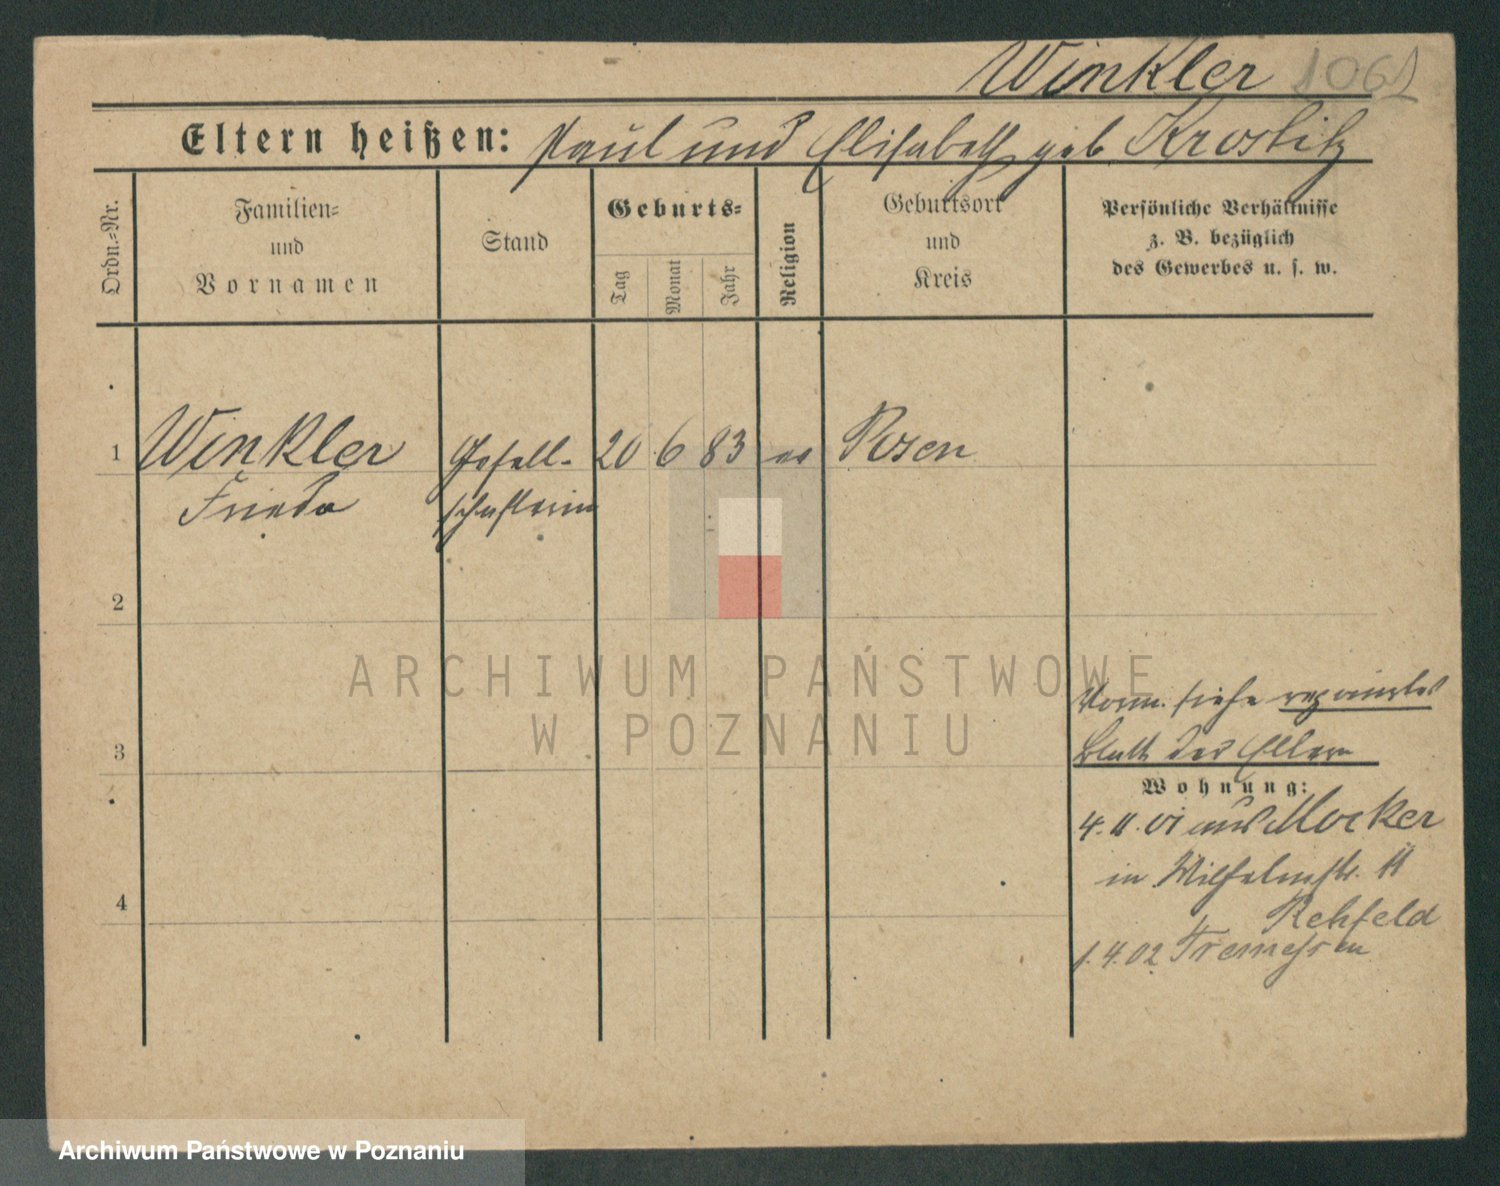 Winkler 1061
Eltern heißen: Paul und Elisabeth geb Krostitz
Ordn.=Nr.
Familien=
und
Vornamen
Stand
Geburts=
Tag
Monat
Jahr
Religion
Geburtsort
und
Kreis
Persönliche Verhältnisse
z. B. bezüglich
des Gewerbes u. s. w.
1 Winkler Gesell- 20 6 83 ev Posen
Frieda schafterin
2
ARCHIWUM PAŃSTWOWE
W POZNANIU
Vorm. siehe
3 Blatt der Eltern
Wohnung:
4. 11. 01 aus Mocker
in Wilhelmstr. 11
4
Rehfeld
1. 4. 02 Tremessen
Archiwum Państwowe w Poznaniu